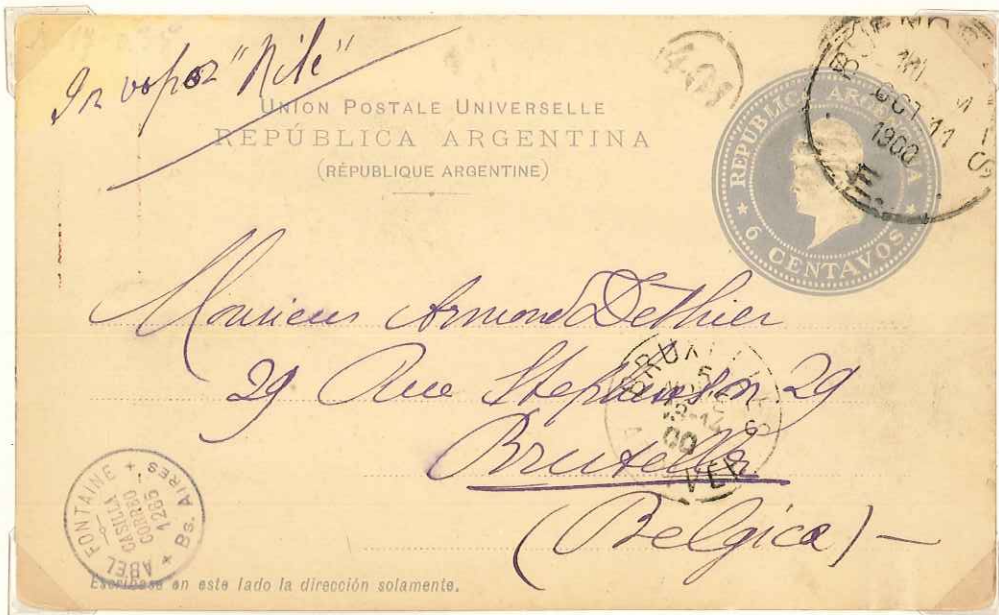 Pr vapor "Nile"
401
UNION POSTALE UNIVERSELLE
REPÚBLICA ARGENTINA
(RÉPUBLIQUE ARGENTINE)
REPUBLICA ARGENTINA
* 6 CENTAVOS *
BUENOS AIRES
OCT 11
1900
Monsieur Armand Dethier
29 Rue Stephenson 29
Bruxelles
(Belgica) —
BRUXELLES
5
00
ABEL FONTAINE + Bs. AIRES +
CASILLA
CORREO
1265
Escríbase en este lado la dirección solamente.